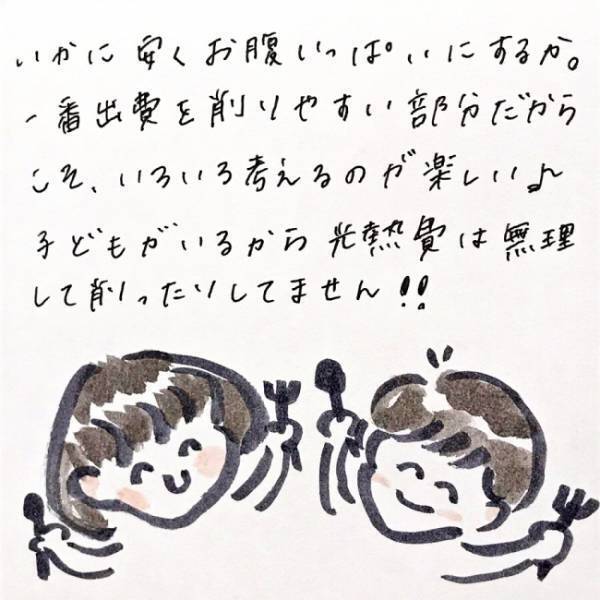 いかに安くお腹いっぱいにするか。
一番出費を削りやすい部分だから
こそ、いろいろ考えるのが楽しい♪
子どもがいるから光熱費は無理
して削ったりしてません!!